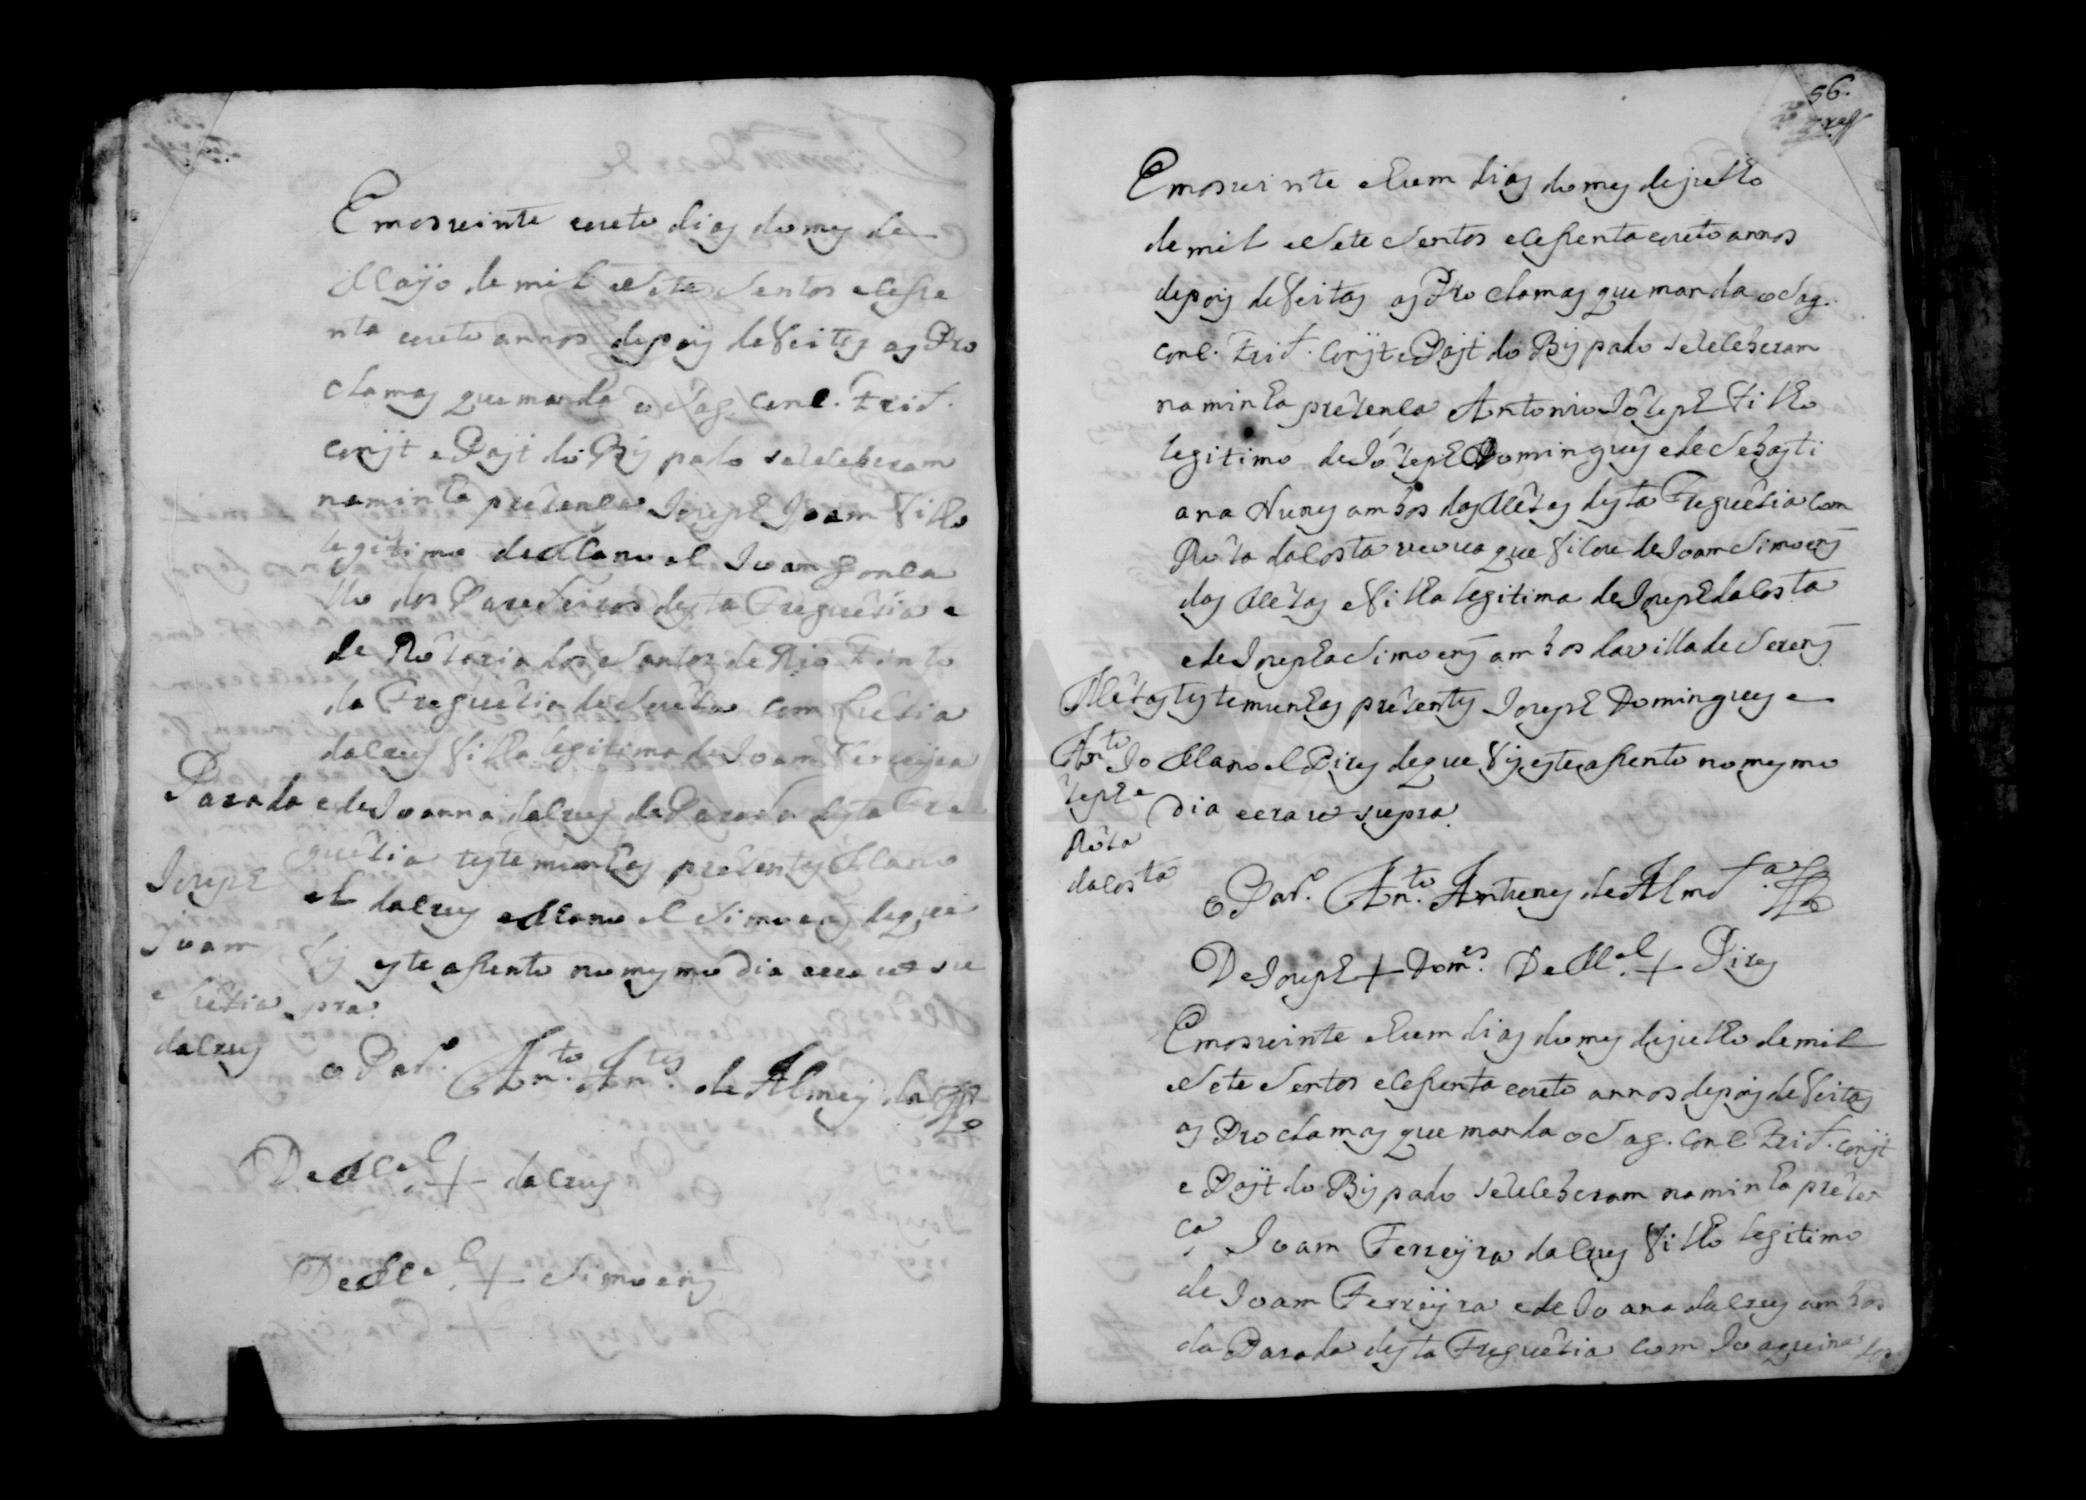 Emos veinte eoeto dias do mes de
Mayo de mil e Sete Sentos e Cesie
nta eoeto annos depois de feitas as Pro
clamas que manda o Sag. Conc. Trid.
conſt e Conſt do Bispado se celeberam
na minha prezença Joseph Joam filho
legitimo de Manoel Joam gonca
llo dos Paredeiros desta Freguezia e
de Rozaria dos Santos de Rio Tinto
da Freguezia de Souto com Luzia
da Crus filha legitima de Joam Ferreyra
Parada e de Joanna da Crus da Parada desta Fre
guezia testemunhas prezentes Mano
el da Crus e Manoel Simoens de que
fis este asiento no mesmo dia aera ut su
pra
Joseph
Joam
e Luzia
da Crus
o Par.º An.to An.tes de Almeyda
De M.el + da Crus
De M.el + Simoens
56.
Emos veinte ehum dias do mes de julho
de mil e Sete Sentos e Cesienta eoeto annos
depois de feitas as Pro clamas que manda o Sag.
Conc. Trid. Conſt e Conſt do Bispado se celeberam
na minha prezença Antonio Jozeph filho
legitimo de Jozeph Domingues e de Sebasti
ana Nunes ambos das Mezas desta Freguezia com
Roza da Costa veuva que ficou de Joam Simoens
das Mezas e filha legitima de Joseph da Costa
e de Josepha Simoens ambos da villa de Serens
Mezas testemunhas prezentes Joseph Domingues e
Manoel Pires de que fis este asiento no mesmo
dia e era ut supra
An.to Jo
zeph e
Roza
da Costa
o Par.º An.to Antunes de Almd.a
De Joseph + Dom.es De M.el + Pires
Emos veinte ehum dias do mes de julho de mil
e Sete Sentos e Cesienta eoeto annos depois de feitas
as Pro clamas que manda o Sag. Conc Trid. Conſt
e Conſt do Bispado se celeberam na minha prezen
ça Joam Ferreyra da Crus filho legitimo
de Joam Ferreyra e de Joana da Crus ambos
da Parada desta Freguezia com Joaquina dos